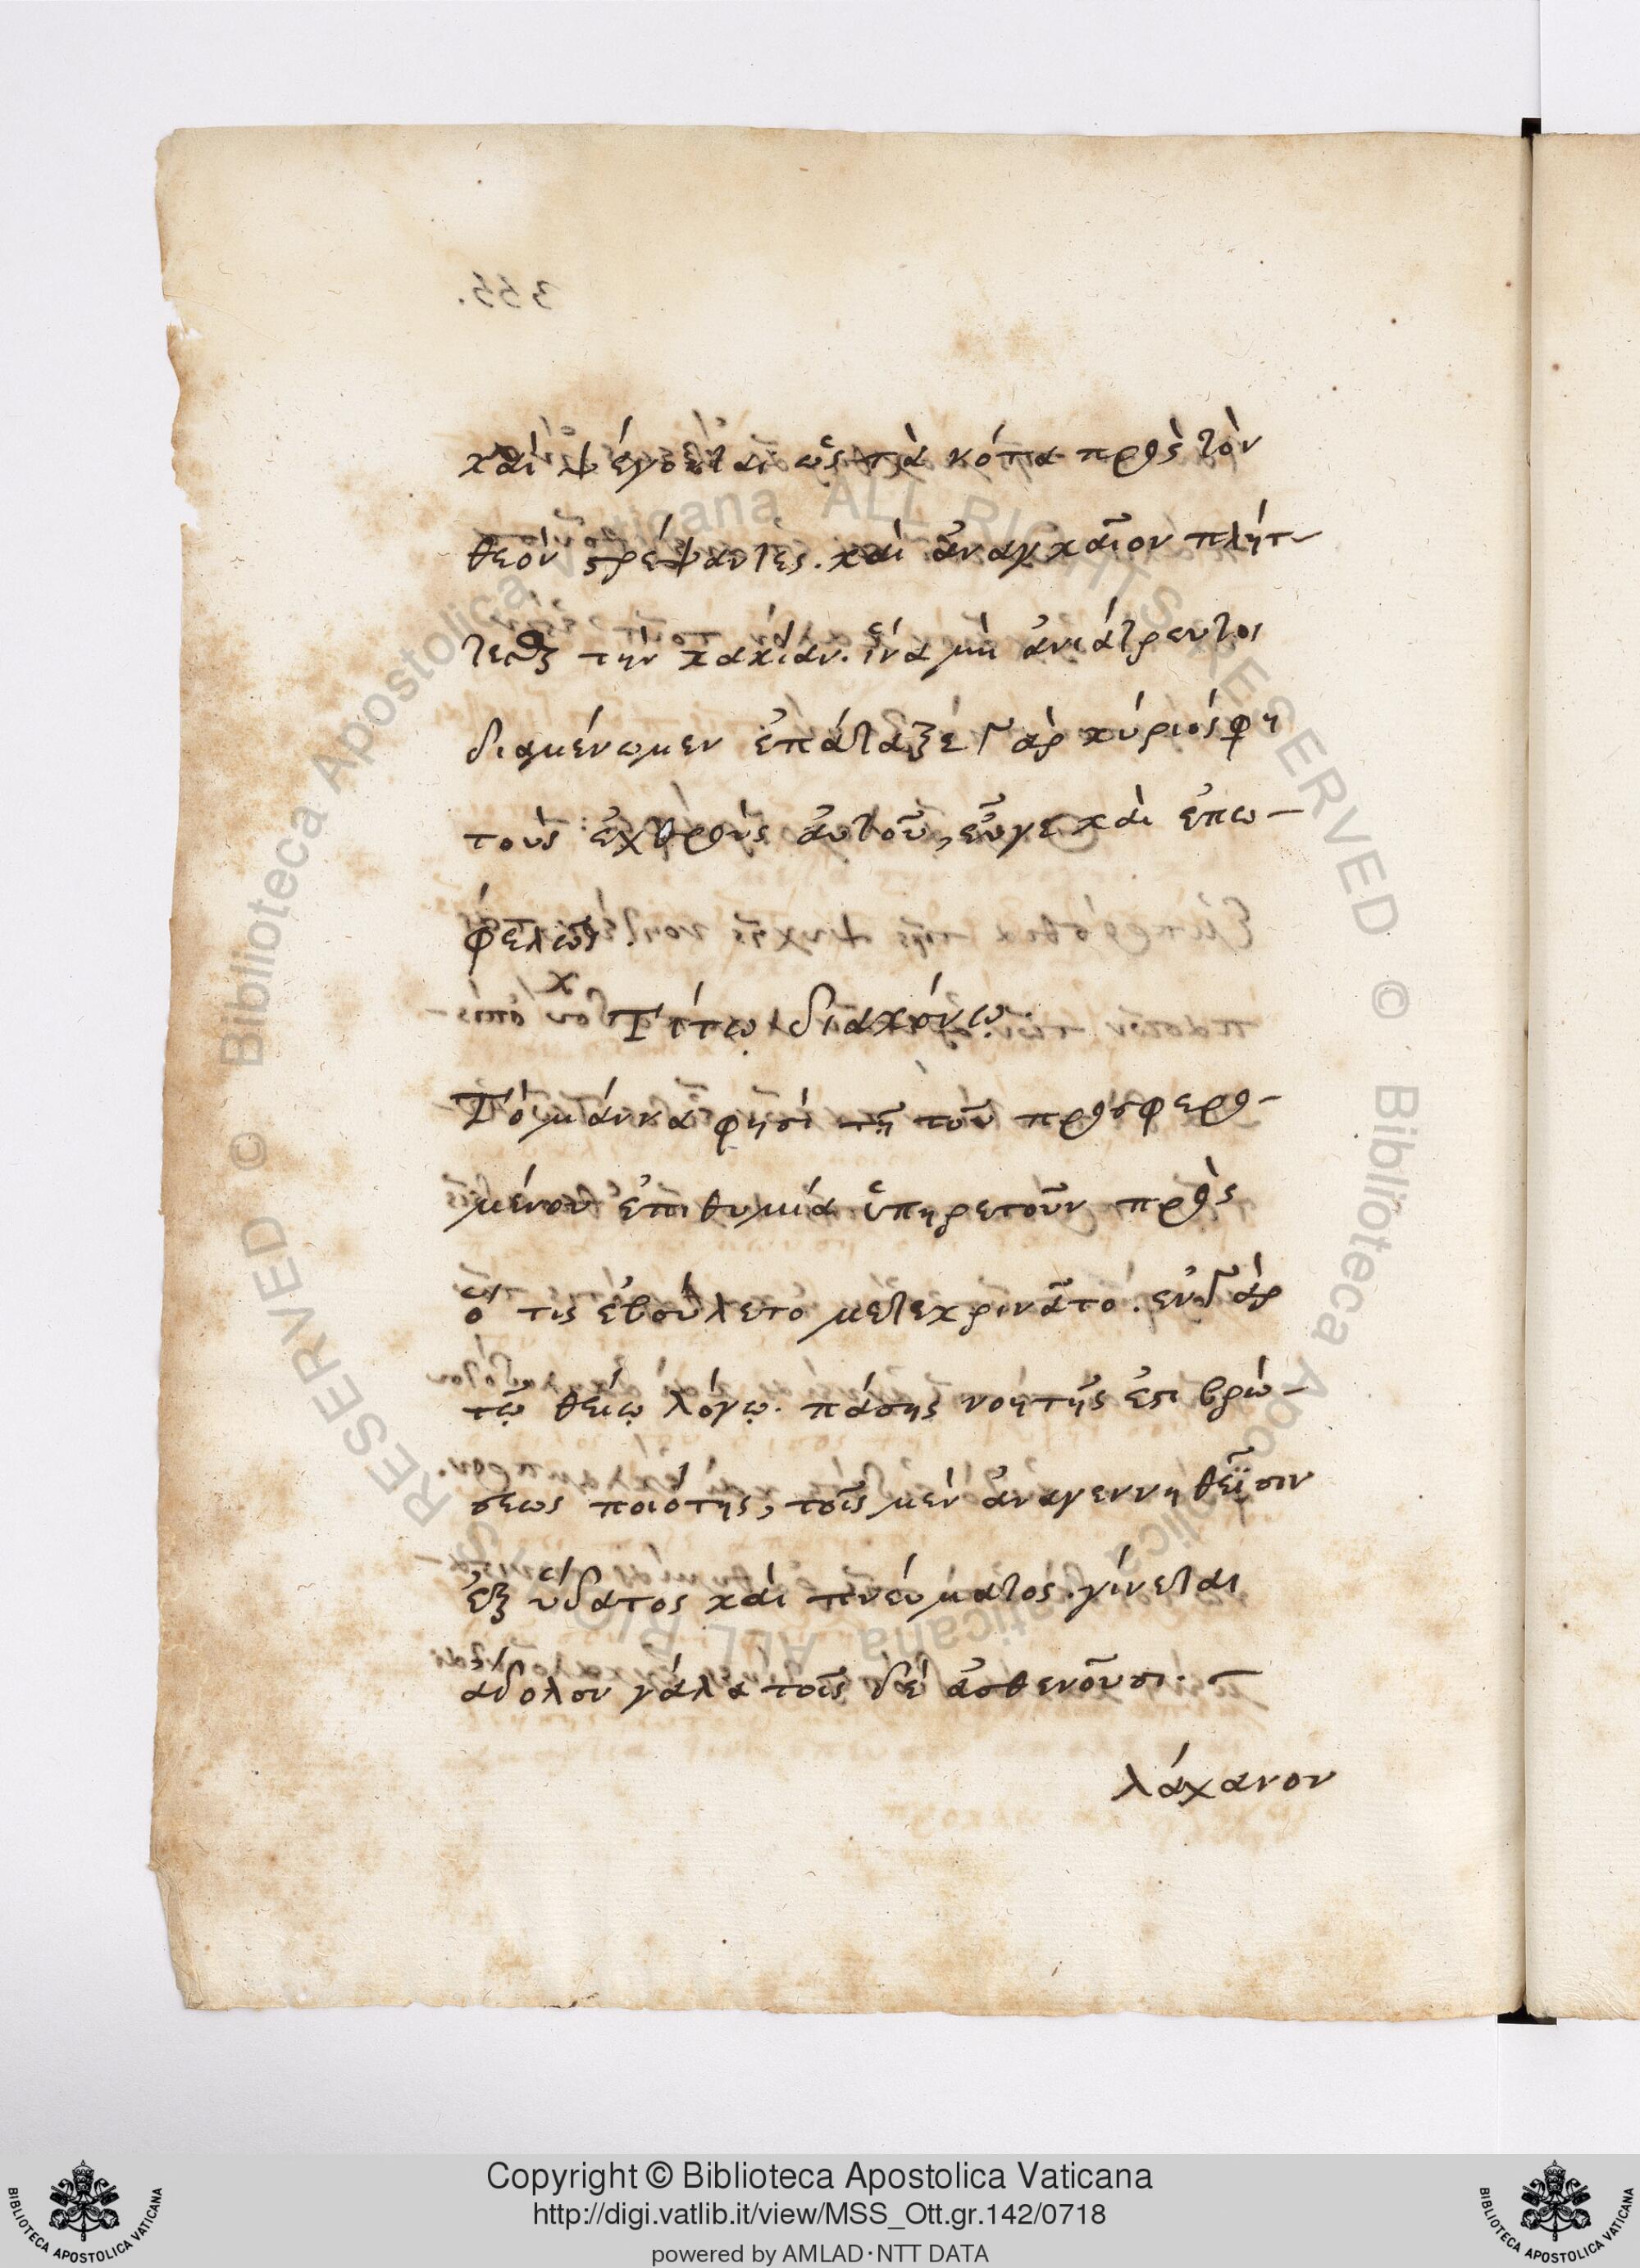 καὶ ψέγοιεται ὡς τὰ νότα πρὸς τὸν
θεὸν στρέψαντες. καὶ ἀναγκαῖον πλήτ-
τεσθαι τὴν κακίαν. ἵνα μὴ ἀνιάτρευτοι
διαμένωμεν ἐπάταξε γὰρ κύριός φη
τοὺς ἐχθροὺς αὐτοῦ, εὖγε καὶ ἐπω-
φελῶς.
Τίτῳ διακόνῳ.
Τὸ μάννα φησὶ τῇ τοῦ προσφερο-
μένου ἐπιθυμία ὑπηρετοῦν πρὸς
ὅ τις ἐβούλετο μετεκρινᾶτο. ἐν γὰρ
τῷ θείῳ λόγῳ. πάσης νοητῆς ἐστι βρώ-
σεως ποιότης, τοῖς μὲν ἀναγεννηθεῖσιν
ἐξ ὕδατος καὶ πνεύματος. γίνεται
ἄδολον γάλα τοῖς δὲ ἀσθενοῦσι.
λάχανον
Copyright © Biblioteca Apostolica Vaticana
http://digi.vatlib.it/view/MSS_Ott.gr.142/0718
powered by AMLAD·NTT DATA
BIBLIOTECA APOSTOLICA VATICANA
BIBLIOTECA APOSTOLICA VATICANA
© Biblioteca Apostolica Vaticana ALL RIGHTS RESERVED
© Biblioteca Apostolica Vaticana ALL RIGHTS RESERVED